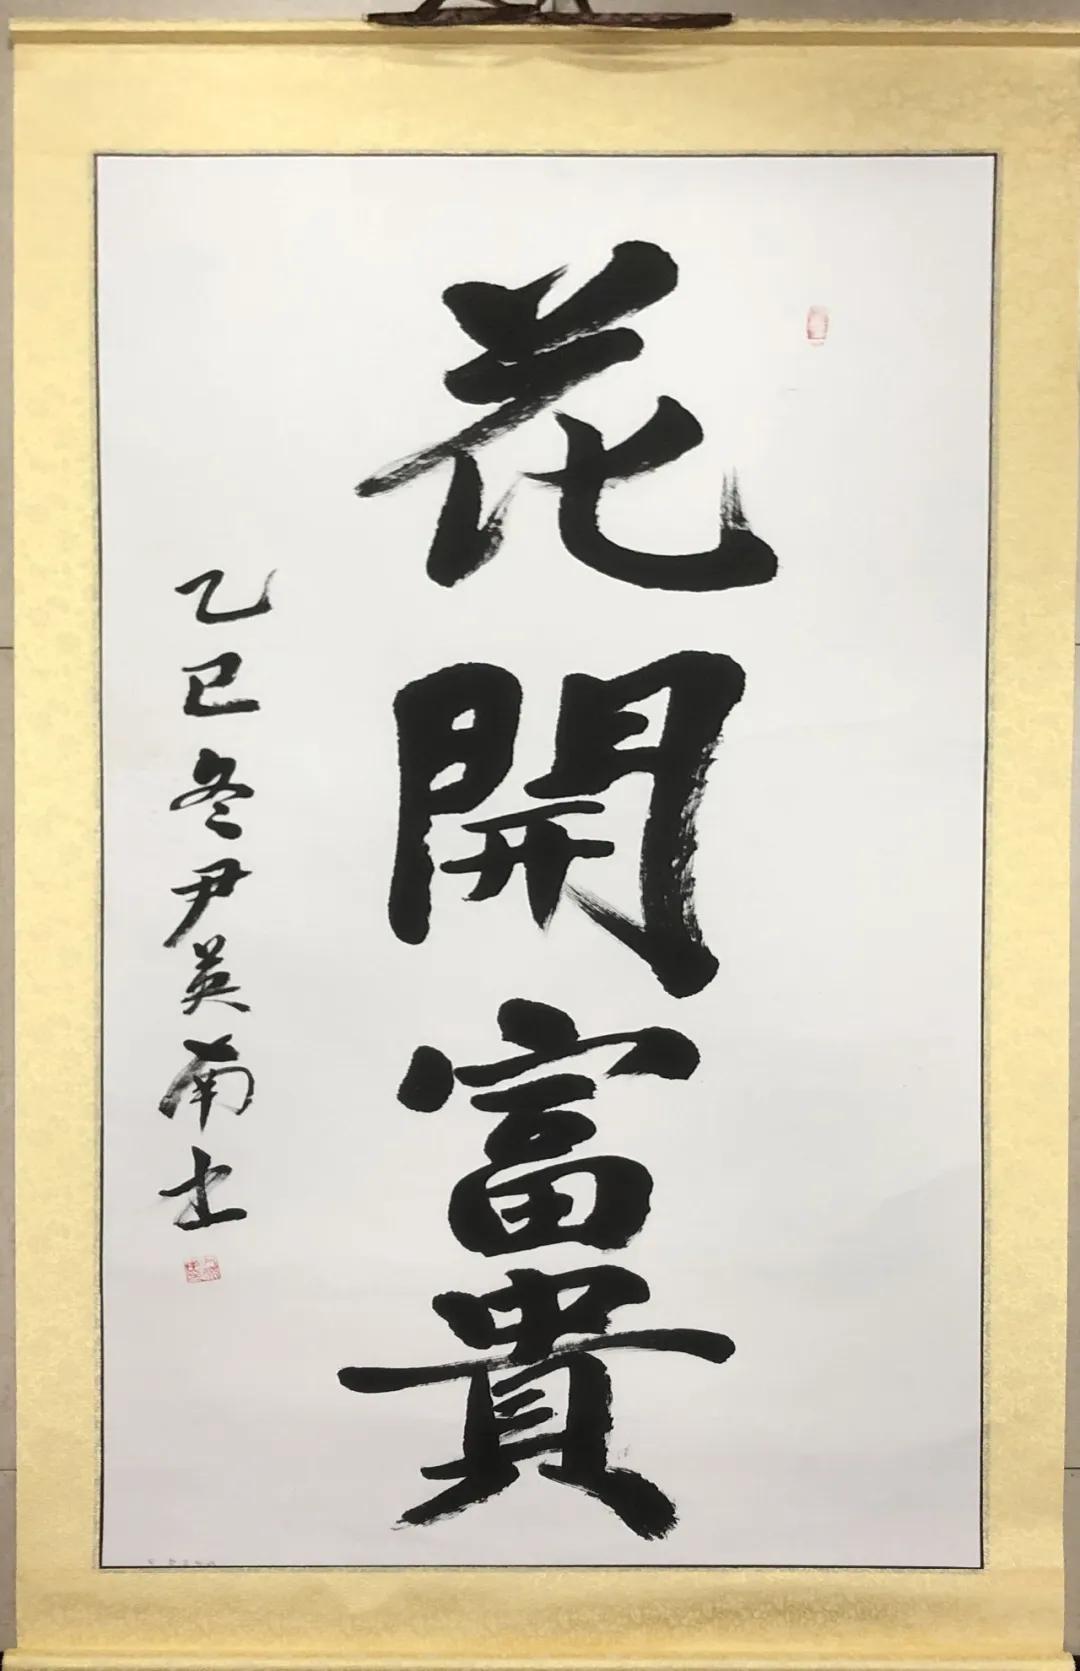 花開富貴
乙巳冬尹英南士